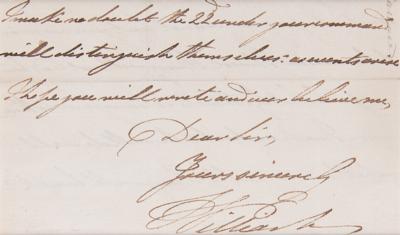 I make no doubt the 22 under your command
will distinguish themselves: as events arise
I hope you will write and ever believe me,
Dear Sir,
Yours sincerely
William